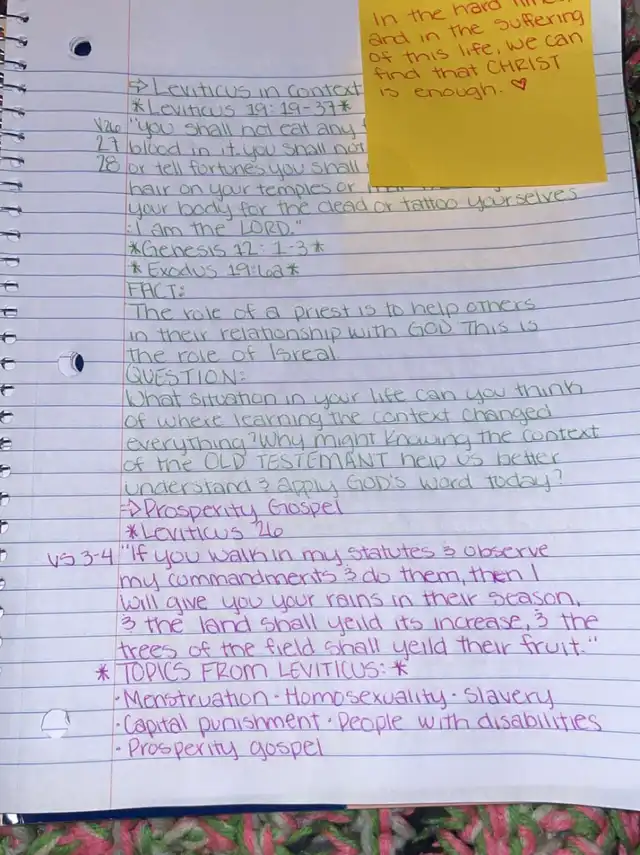 In the hard
and in the suffering
of this life, we can
find that CHRIST
is enough. ♡
⇒Leviticus in context
*Leviticus 19:19-37*
V26 "you shall not eat any
27 blood in it. you shall not
28 or tell fortunes you shall
hair on your temples or
your body for the dead or tattoo yourselves
: I am the LORD."
*Genesis 12:1-3*
*Exodus 19:6a*
FACT:
The role of a priest is to help others
in their relationship with GOD This is
the role of Isreal.
QUESTION:
What situation in your life can you think
of where learning the context changed
everything? Why might knowing the context
of the OLD TESTEMANT help us better
understand & apply GOD's word today?
⇒Prosperity Gospel
*Leviticus 26
VS 3-4 "If you walk in my statutes & observe
my commandments & do them, then I
will give you your rains in their season,
& the land shall yeild its increase, & the
trees of the field shall yeild their fruit."
* TOPICS FROM LEVITICUS: *
·Menstruation ·Homosexuality ·Slavery
·Capital punishment ·People with disabilities
·Prosperity gospel